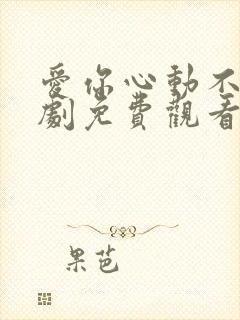 愛你心動不
劇免費觀看
果芭